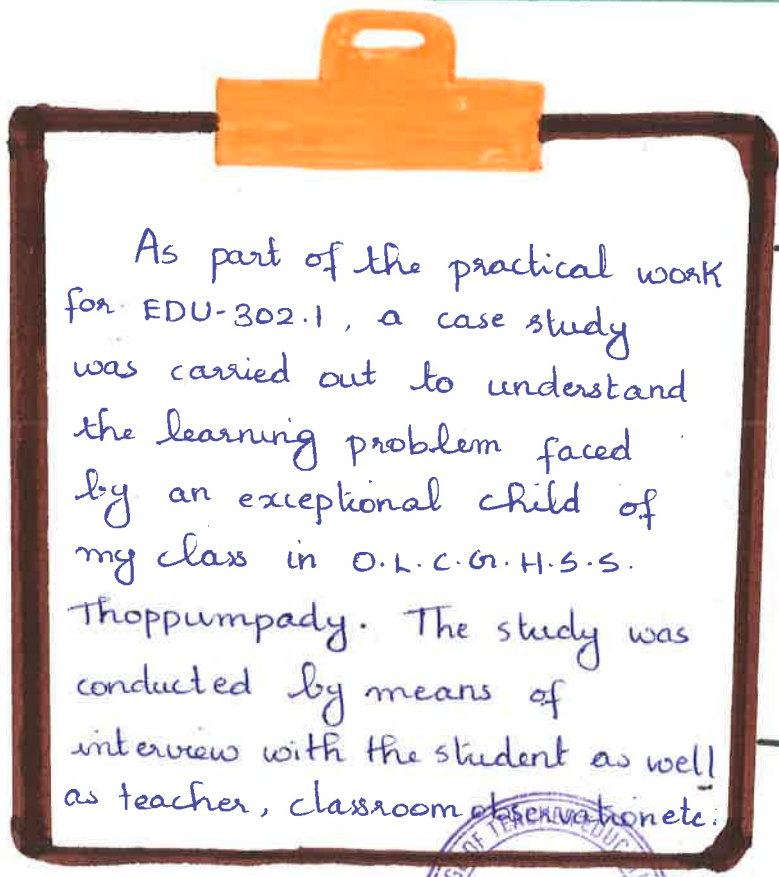 As part of the practical work
for EDU-302.1, a case study
was carried out to understand
the learning problem faced
by an exceptional child of
my class in O.L.C.G.H.S.S.
Thoppumpady. The study was
conducted by means of
interview with the student as well
as teacher, classroom observation etc.
OF TEACHER EDUC